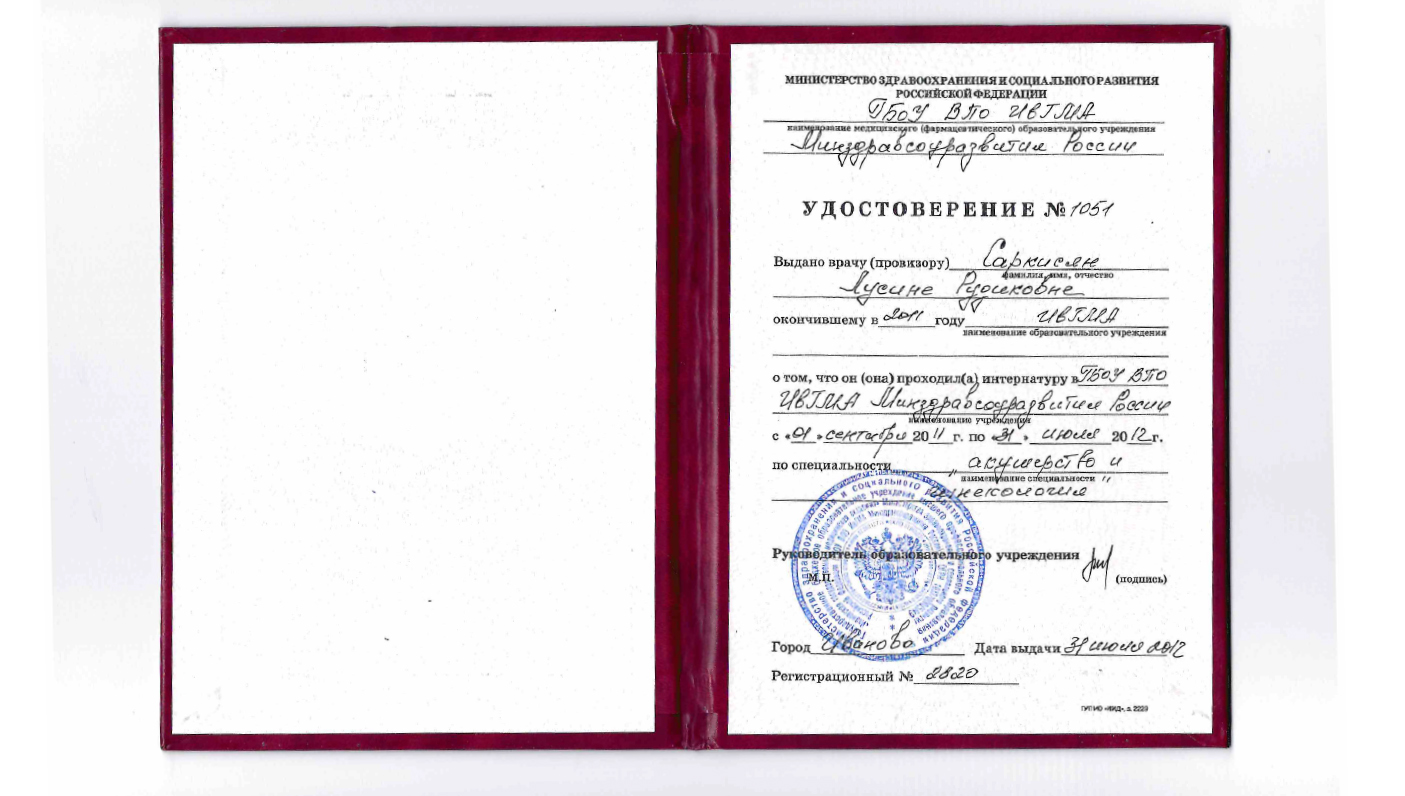 МИНИСТЕРСТВО ЗДРАВООХРАНЕНИЯ И СОЦИАЛЬНОГО РАЗВИТИЯ
РОССИЙСКОЙ ФЕДЕРАЦИИ
ГБОУ ВПО ИвГМА
наименование медицинского (фармацевтического) образовательного учреждения
Минздравсоцразвития России
УДОСТОВЕРЕНИЕ № 1051
Выдано врачу (провизору) Саркисян
фамилия, имя, отчество
Лусине Рудиковне
окончившему в 2011 году ИвГМА
наименование образовательного учреждения
о том, что он (она) проходил(а) интернатуру в ГБОУ ВПО
ИвГМА Минздравсоцразвития России
наименование учреждения
с «01» сентября 2011 г. по «31» июля 2012 г.
по специальности „акушерство и
наименование специальности
гинекология"
Руководитель образовательного учреждения
М.П. (подпись)
Город Иваново Дата выдачи 31 июля 2012
Регистрационный № 2820
здравоохранения и социального развития Российской Федерации